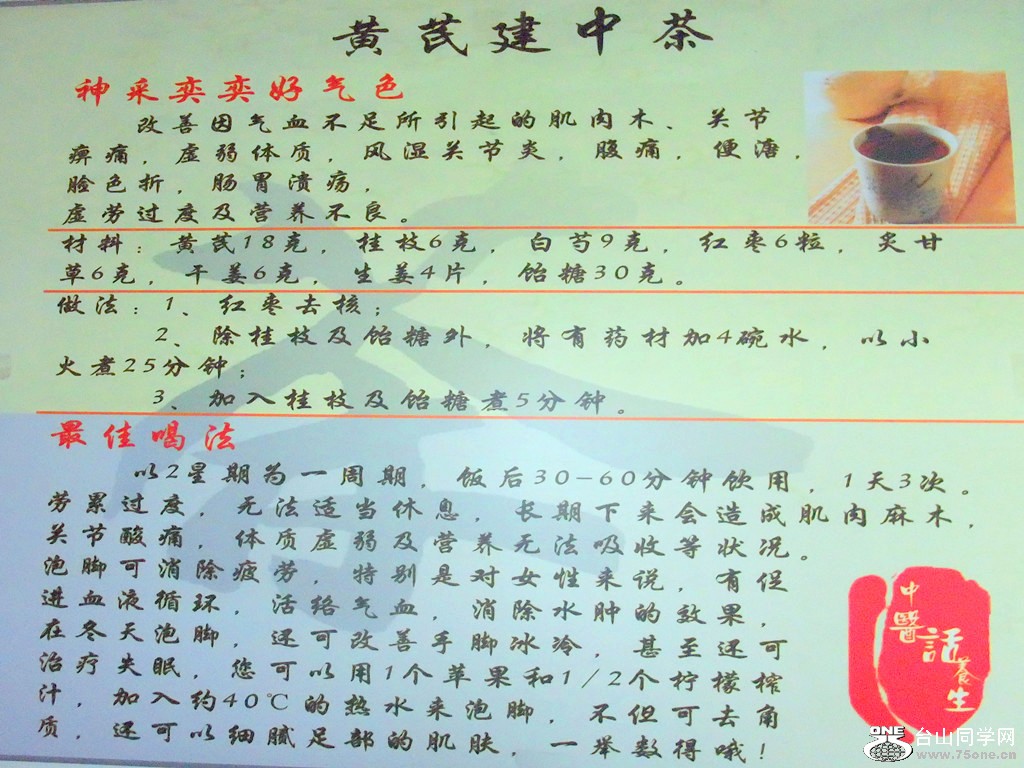 黄芪建中茶
神采奕奕好气色
改善因气血不足所引起的肌肉木、关节
痹痛，虚弱体质，风湿关节炎，腹痛，便溏，
脸色折，肠胃溃疡，
虚劳过度及营养不良。
材料：黄芪18克，桂枝6克，白芍9克，红枣6粒，炙甘
草6克，干姜6克，生姜4片，饴糖30克。
做法：1、红枣去核；
2、除桂枝及饴糖外，将有药材加4碗水，以小
火煮25分钟；
3、加入桂枝及饴糖煮5分钟。
最佳喝法
以2星期为一周期，饭后30-60分钟饮用，1天3次。
劳累过度，无法适当休息，长期下来会造成肌肉麻木，
关节酸痛，体质虚弱及营养无法吸收等状况。
泡脚可消除疲劳，特别是对女性来说，有促
进血液循环，活络气血，消除水肿的效果，
在冬天泡脚，还可改善手脚冰冷，甚至还可
治疗失眠，您可以用1个苹果和1/2个柠檬榨
汁，加入约40℃的热水来泡脚，不但可去角
质，还可以细腻足部的肌肤，一举数得哦！
中醫
話
養生
ONE
台山同学网
www.75one.cn